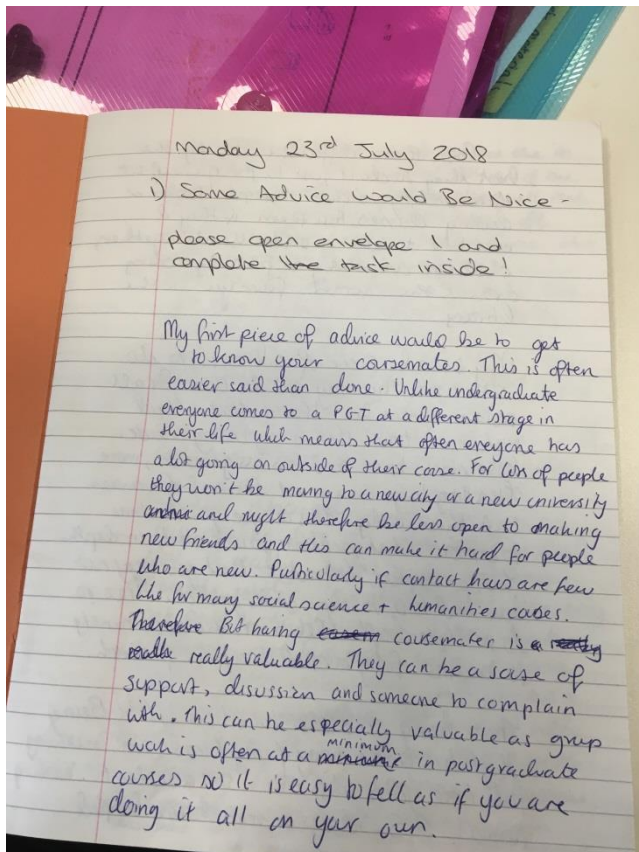 materials
Monday 23rd July 2018
1) Some Advice Would Be Nice -
please open envelope 1 and
complete the task inside!
My first piece of advice would be to get
to know your coursemates. This is often
easier said than done. Unlike undergraduate
everyone comes to a PGT at a different stage in
their life which means that often everyone has
a lot going on outside of their course. For lots of people
they won't be moving to a new city or a new university
and might therefore be less open to making
new friends and this can make it hard for people
who are new. Particularly if contact hours are few
like for many social science + humanities courses.
Therefore But having coursemates is a really
really really valuable. They can be a source of
support, discussion and someone to complain
with. This can be especially valuable as group
work is often at a minimum in postgraduate
courses so it is easy to fell as if you are
doing it all on your own.